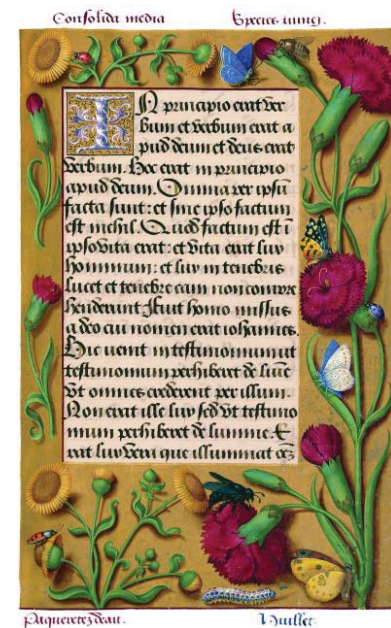 Consolida media
Species iunij.
IN principio erat ver
bum et verbum erat a
pud deum et deus erat
verbum. Hoc erat in principio
apud deum. Omnia per ipsū
facta sunt: et sine ipso factum
est nichil. Quod factum est ī
ipso vita erat: et vita erat lux
hominum: et lux in tenebris
lucet et tenebre eam non compre
henderunt Fuit homo missus
a deo cui nomen erat iohannes.
Hic venit in testimonium ut
testimonium perhiberet de lumīe
Vt omnes crederent per illum.
Non erat ille lux sed vt testimo
nium perhiberet de lumine. E
rat lux vera que illuminat oēz
Paqueretes deau.
Huillet